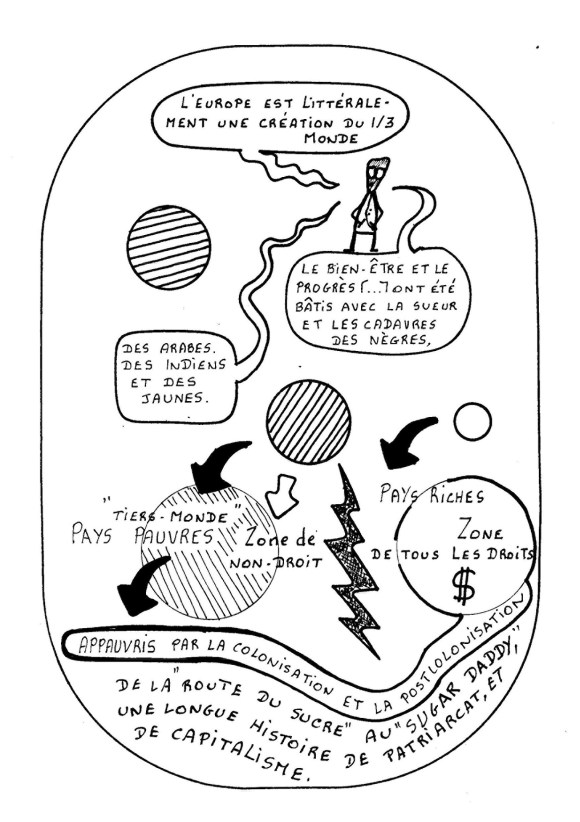 L'EUROPE EST LITTÉRALE-
MENT UNE CRÉATION DU 1/3
MONDE
LE BIEN-ÊTRE ET LE
PROGRÈS [...] ONT ÉTÉ
BÂTIS AVEC LA SUEUR
ET LES CADAVRES
DES NÈGRES,
DES ARABES.
DES INDIENS
ET DES
JAUNES.
"TIERS-MONDE"
PAYS PAUVRES
Zone de
NON-DROIT
PAYS RICHES
ZONE
DE TOUS LES DROITS
$
APPAUVRIS PAR LA COLONISATION ET LA POSTCOLONISATION
DE LA "ROUTE DU SUCRE" AU "SUGAR DADDY",
UNE LONGUE HISTOIRE DE PATRIARCAT, ET
DE CAPITALISME.